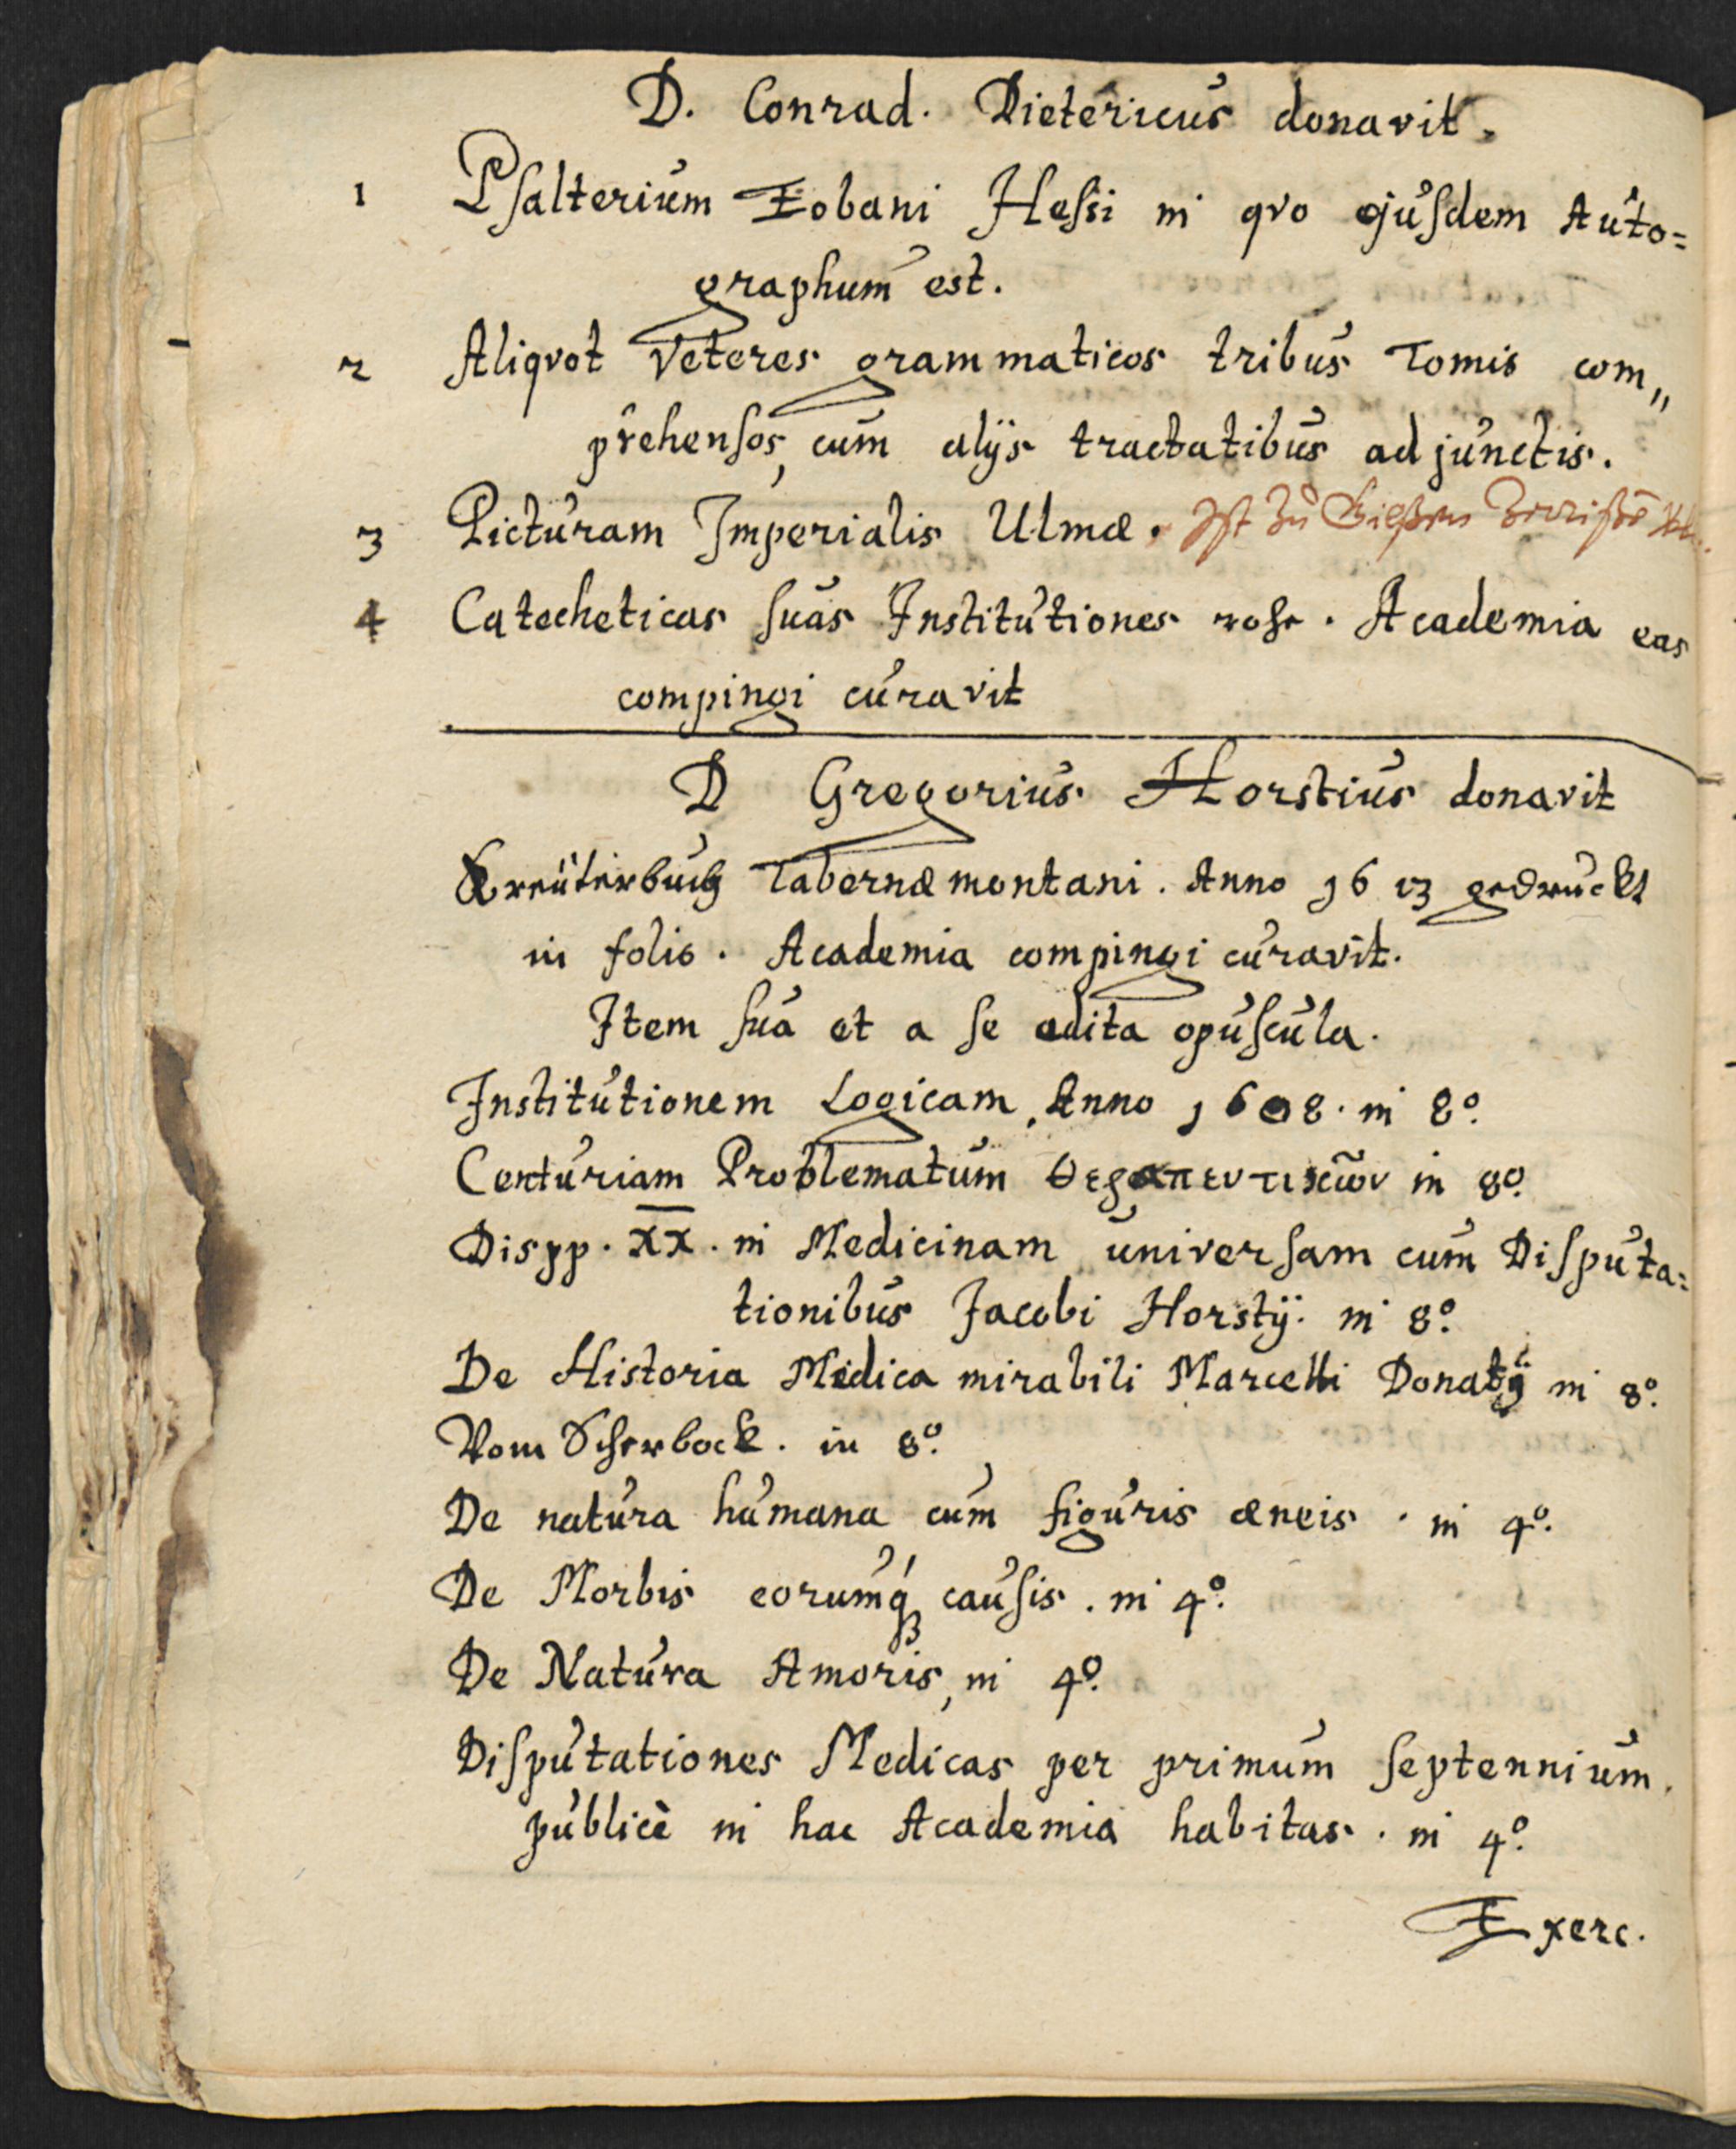 D. Conrad. Dietericus donavit.
1 Psalterium Eobani Hessi in qvo ejusdem Auto=
graphum est.
2 Aliqvot Veteres grammaticos tribus Tomis com„
prehensos, cum alijs tractatibus adjunctis.
3 Picturam Imperialis Ulmæ. Ist zu Gießen Zerrißē
4 Catecheticas suas Institutiones. Academia eas
compingi curavit
D Gregorius Horstius donavit
Kreüterbuch Tabernæmontani. Anno 1613 gedruckt
in folio. Academia compingi curavit.
Item sua et a se edita opuscula.
Institutionem Logicam, Anno 1608. in 8º.
Centuriam Problematum Θεραπευτικῶν in 8º.
Dispp. XX. in Medicinam universam cum Disputa=
tionibus Jacobi Horstij. in 8º.
De Historia Medica mirabili Marcelli Donatij in 8º.
Vom Scherbock. in 8º.
De natura humana cum figuris æneis. in 4º.
De Morbis eorumq́ꝫ causis. in 4º.
De Natura Amoris, in 4º.
Disputationes Medicas per primum septennium
publicè in hac Academia habitas. in 4º.
Exerc.